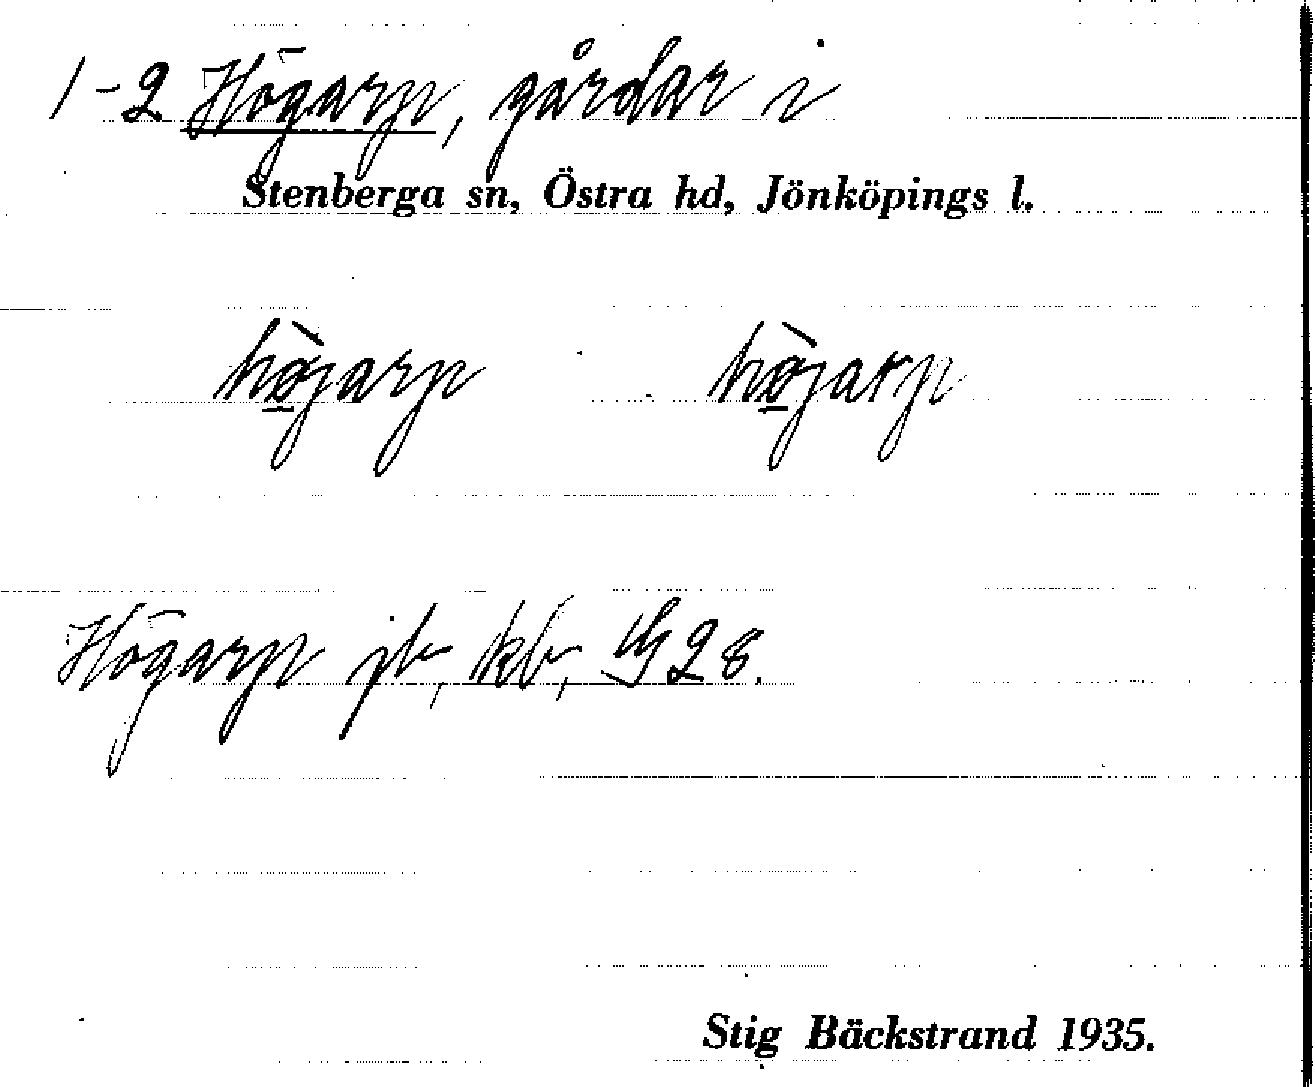 1-2 Högarp, gårdar i
Stenberga sn, Östra hd, Jönköpings l.
hø̀jarp hø̀jarp
Högarp jb, kb, G 28.
Stig Bäckstrand 1935.